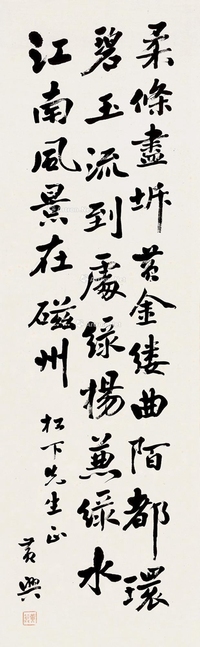 柔條盡坼黃金縷曲陌都環
碧玉流到處綠楊蕙綠水
江南風景在磁州
松下先生正
黃興